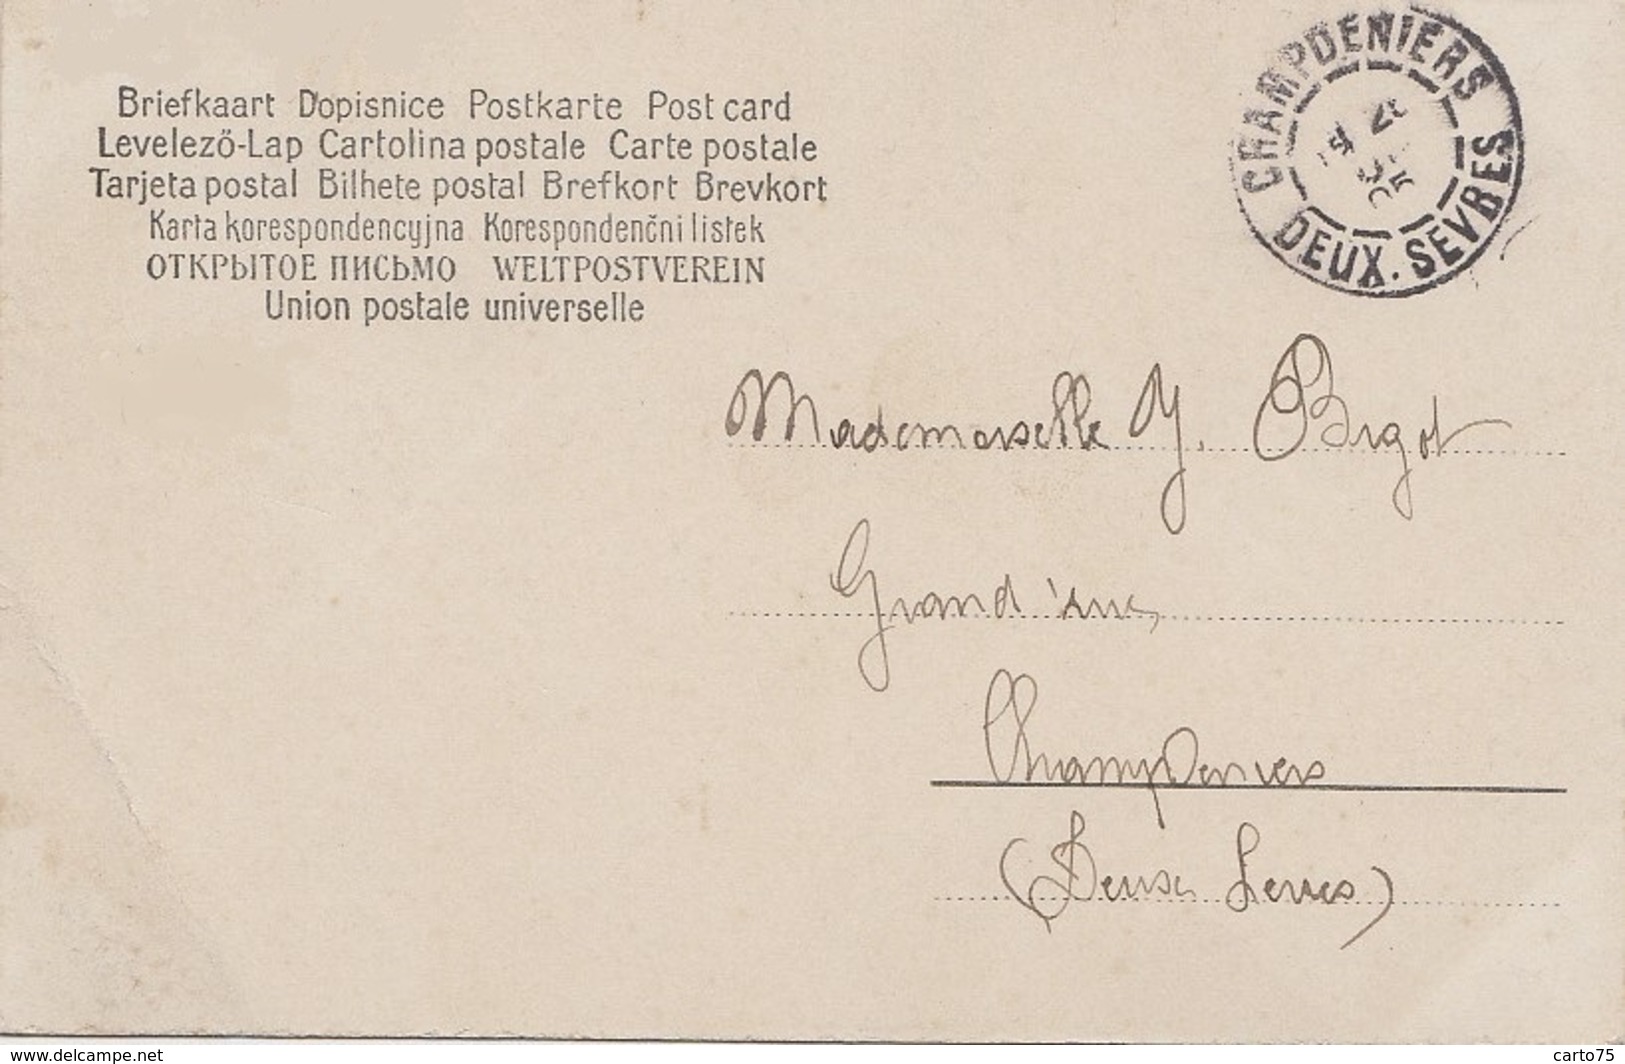 Briefkaart Dopisnice Postkarte Post card
Levelező-Lap Cartolina postale Carte postale
Tarjeta postal Bilhete postal Brefkort Brevkort
Karta korespondencyjna Korespondenčni listek
ОТКРЫТОЕ ПИСЬМО WELTPOSTVEREIN
Union postale universelle
CHAMPDENIERS
DEUX.SEVRES
Mademoiselle Y. Bigot
Grand'rue
Champdeniers
(Deux Sevres)
www.delcampe.net
carto75